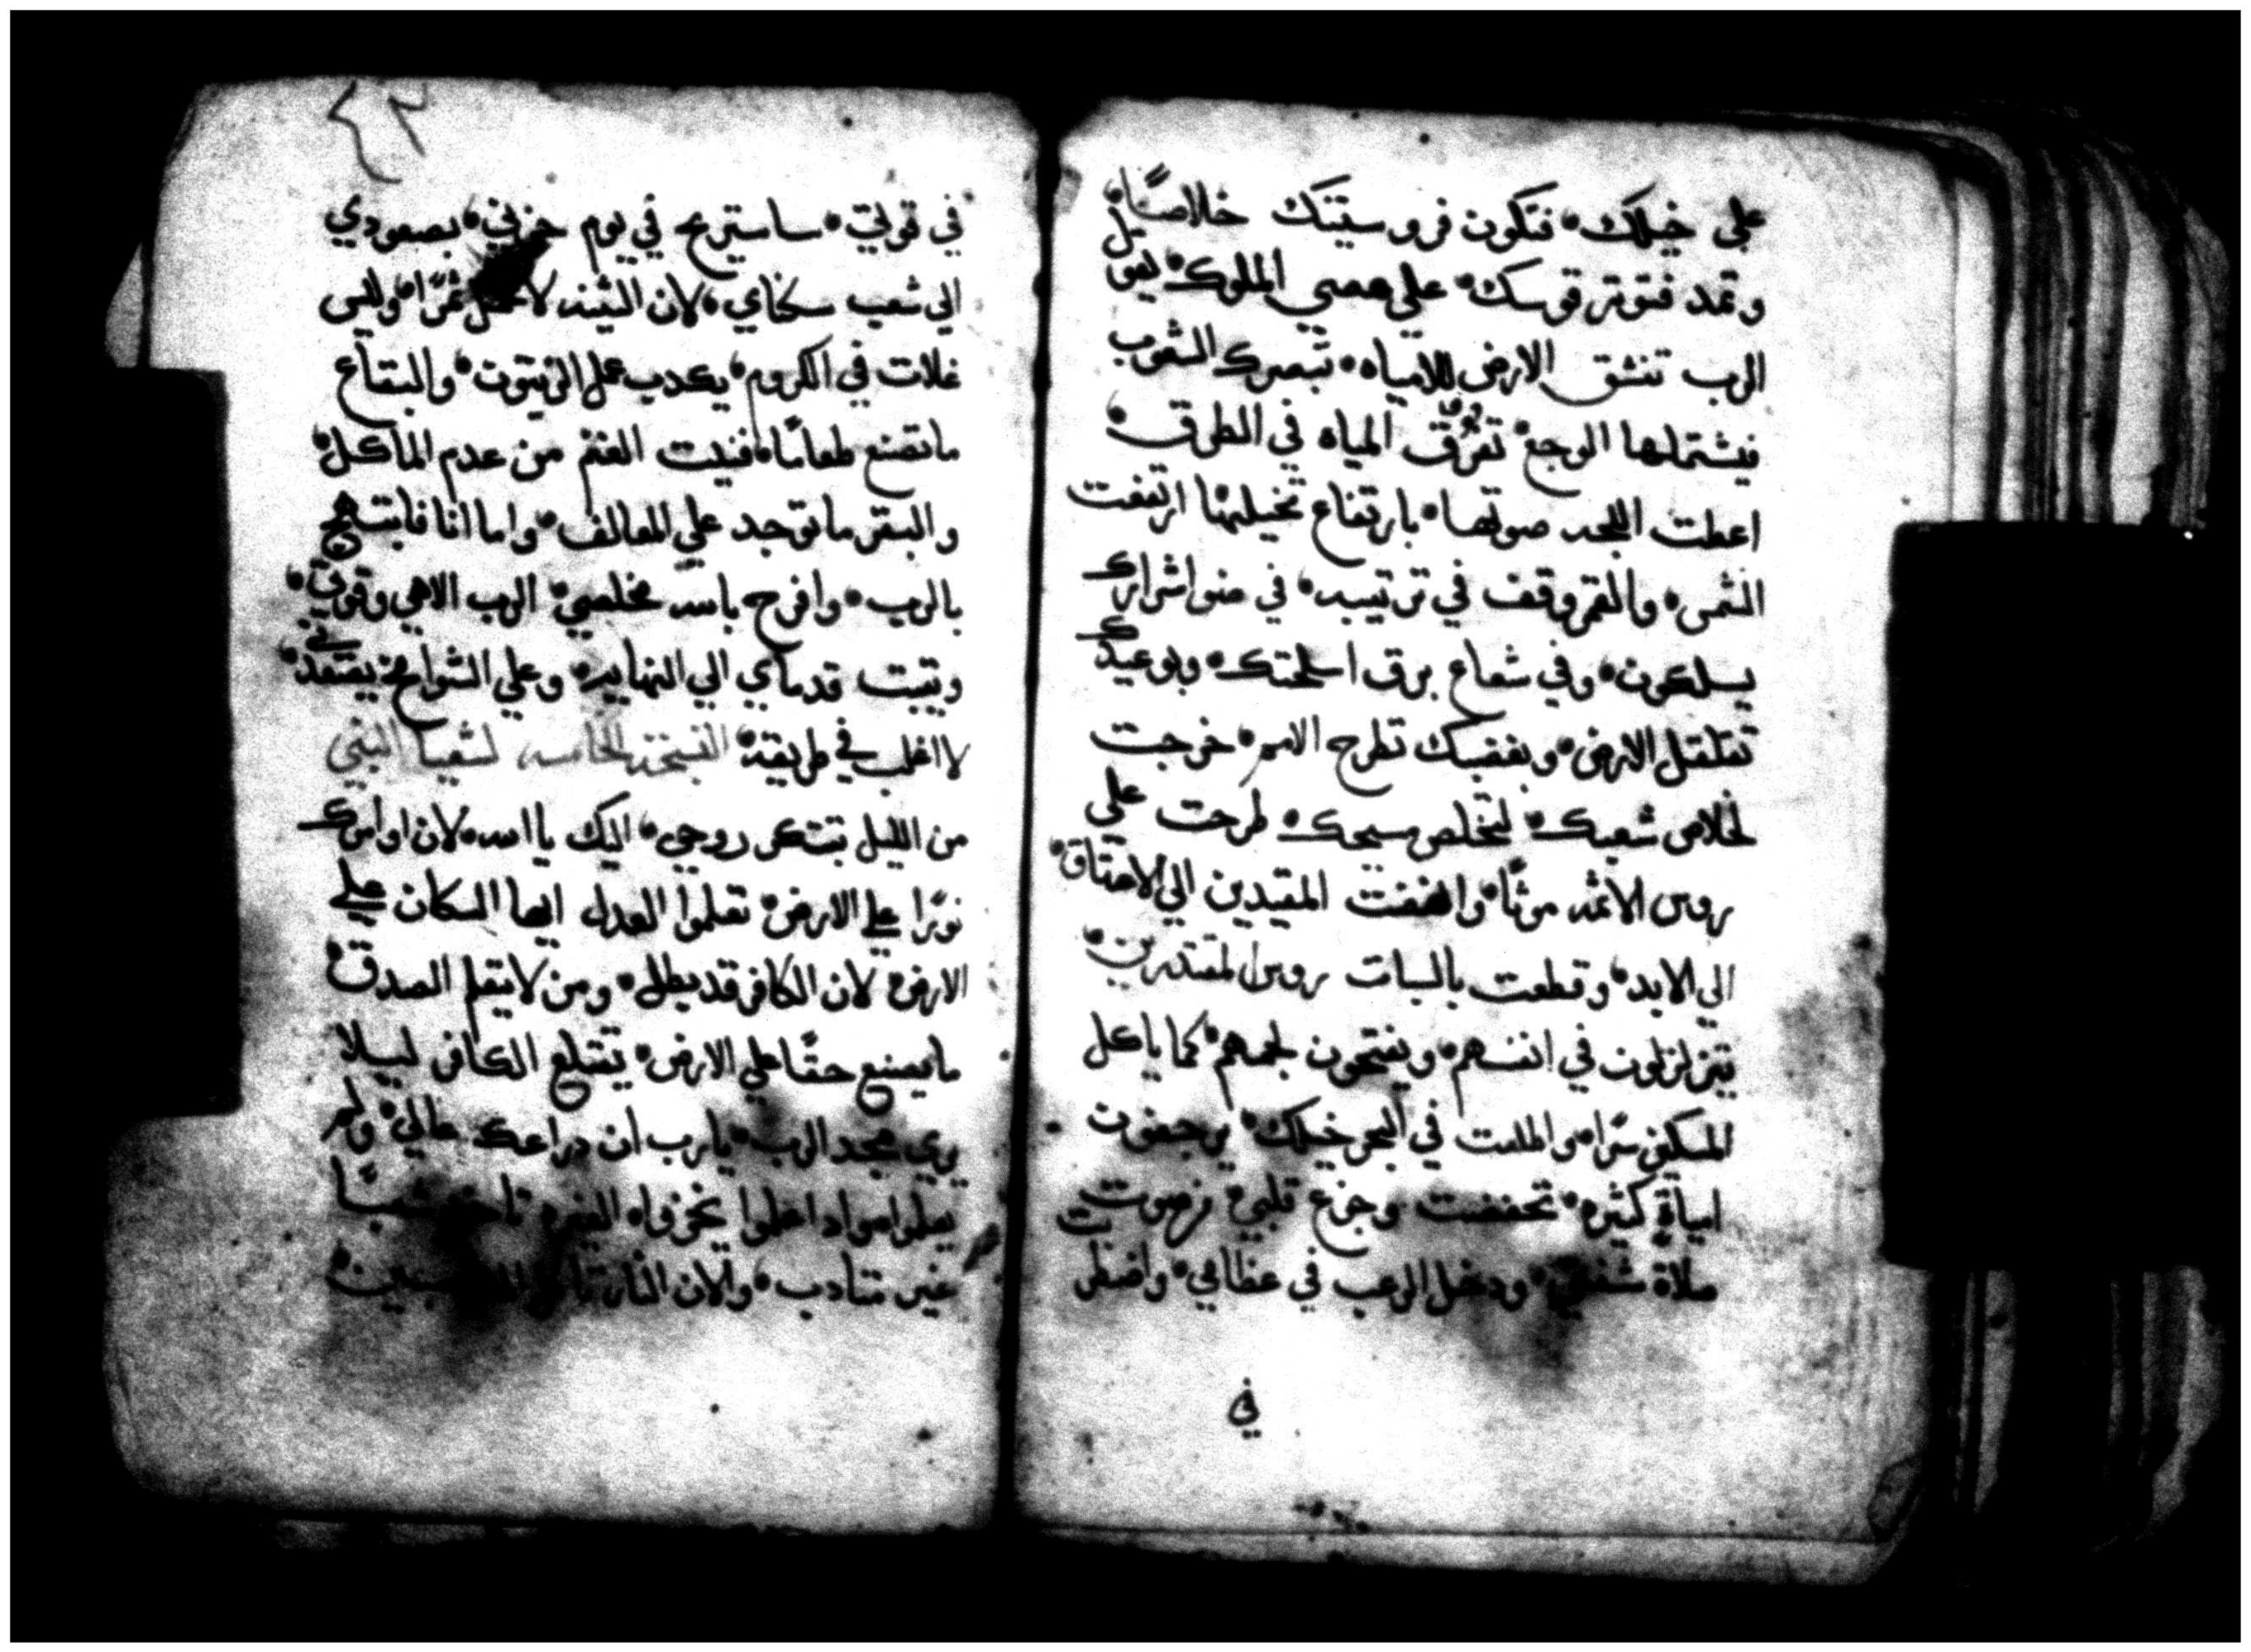 علي خيلك، فتكون فروسيتك خلاصًا،
وتمد فتوتر قوسك، علي عصي الملوك، يقول
الرب تنشق الارض للامياه، تبصرك الشعوب
فيشتملها الوجع، تفرق المياه في الطرق،
اعطت اللجه صوتها، بارتفاع تخيلها ارتفعت
الشمس، والقمر وقف في ترتيبه، في ضو اشرارك
يسلكون، وفي شعاع برق اسلحتك، وبوعيدك
تقلقل الارض، وبغضبك تطرح الامم، خرجت
لخلاص شعبك، لتخلص مسيحك، طرحت علي
روس الاثمه موتًا، وانهضت المقيدين الي الاعناق،
الي الابد، وقطعت بالسبات روس المقتدرين،
تتزلزلون في انفسهم، ويفتحون لجمهم، كما ياكل
المسكين سرًا، واطلعت في البحر خيلك، يرجفون
امياة كثيره، تحفضت وجزع قلبي، من صوت
صلاة شفتي، ودخل الرعب في عظامي، واضطر
في
٤٢
في قوتي، ساستريح في يوم حزني، بصعودي
الي شعب سكناي، لان التينه لا تحمل ثمرًا، وليس
غلات في الكروم، يكدب عمل الزيتون، والبقاع
ما تصنع طعامًا، فنيت الغنم من عدم الماكل،
والبقر ما توجد علي المعالف، واما انا فابتهج
بالرب، وافرح بالله مخلصي، الرب الاهي وقوتي،
ويثبت قدماي الي النهايه، وعلي الشوامخ يصعدني،
لا اغلب في طريقته، التسبحة الخامسه لشعيا النبي
من الليل تبتكر روحي، اليك يا الله، لان اوامرك
نورًا علي الارض، تعلموا العدل ايها السكان علي
الارض، لان الكافر قد بطل، ومن لا يتعلم الصدق،
ما يصنع حقًا علي الارض، يقتلع الكافر ليلا
يري مجد الرب، يارب ان دراعك عالي، ولم
يعلموا، واد اعلموا يخزوا، الغيره تاخد شعبًا
غير متادب، والان النار تاكل